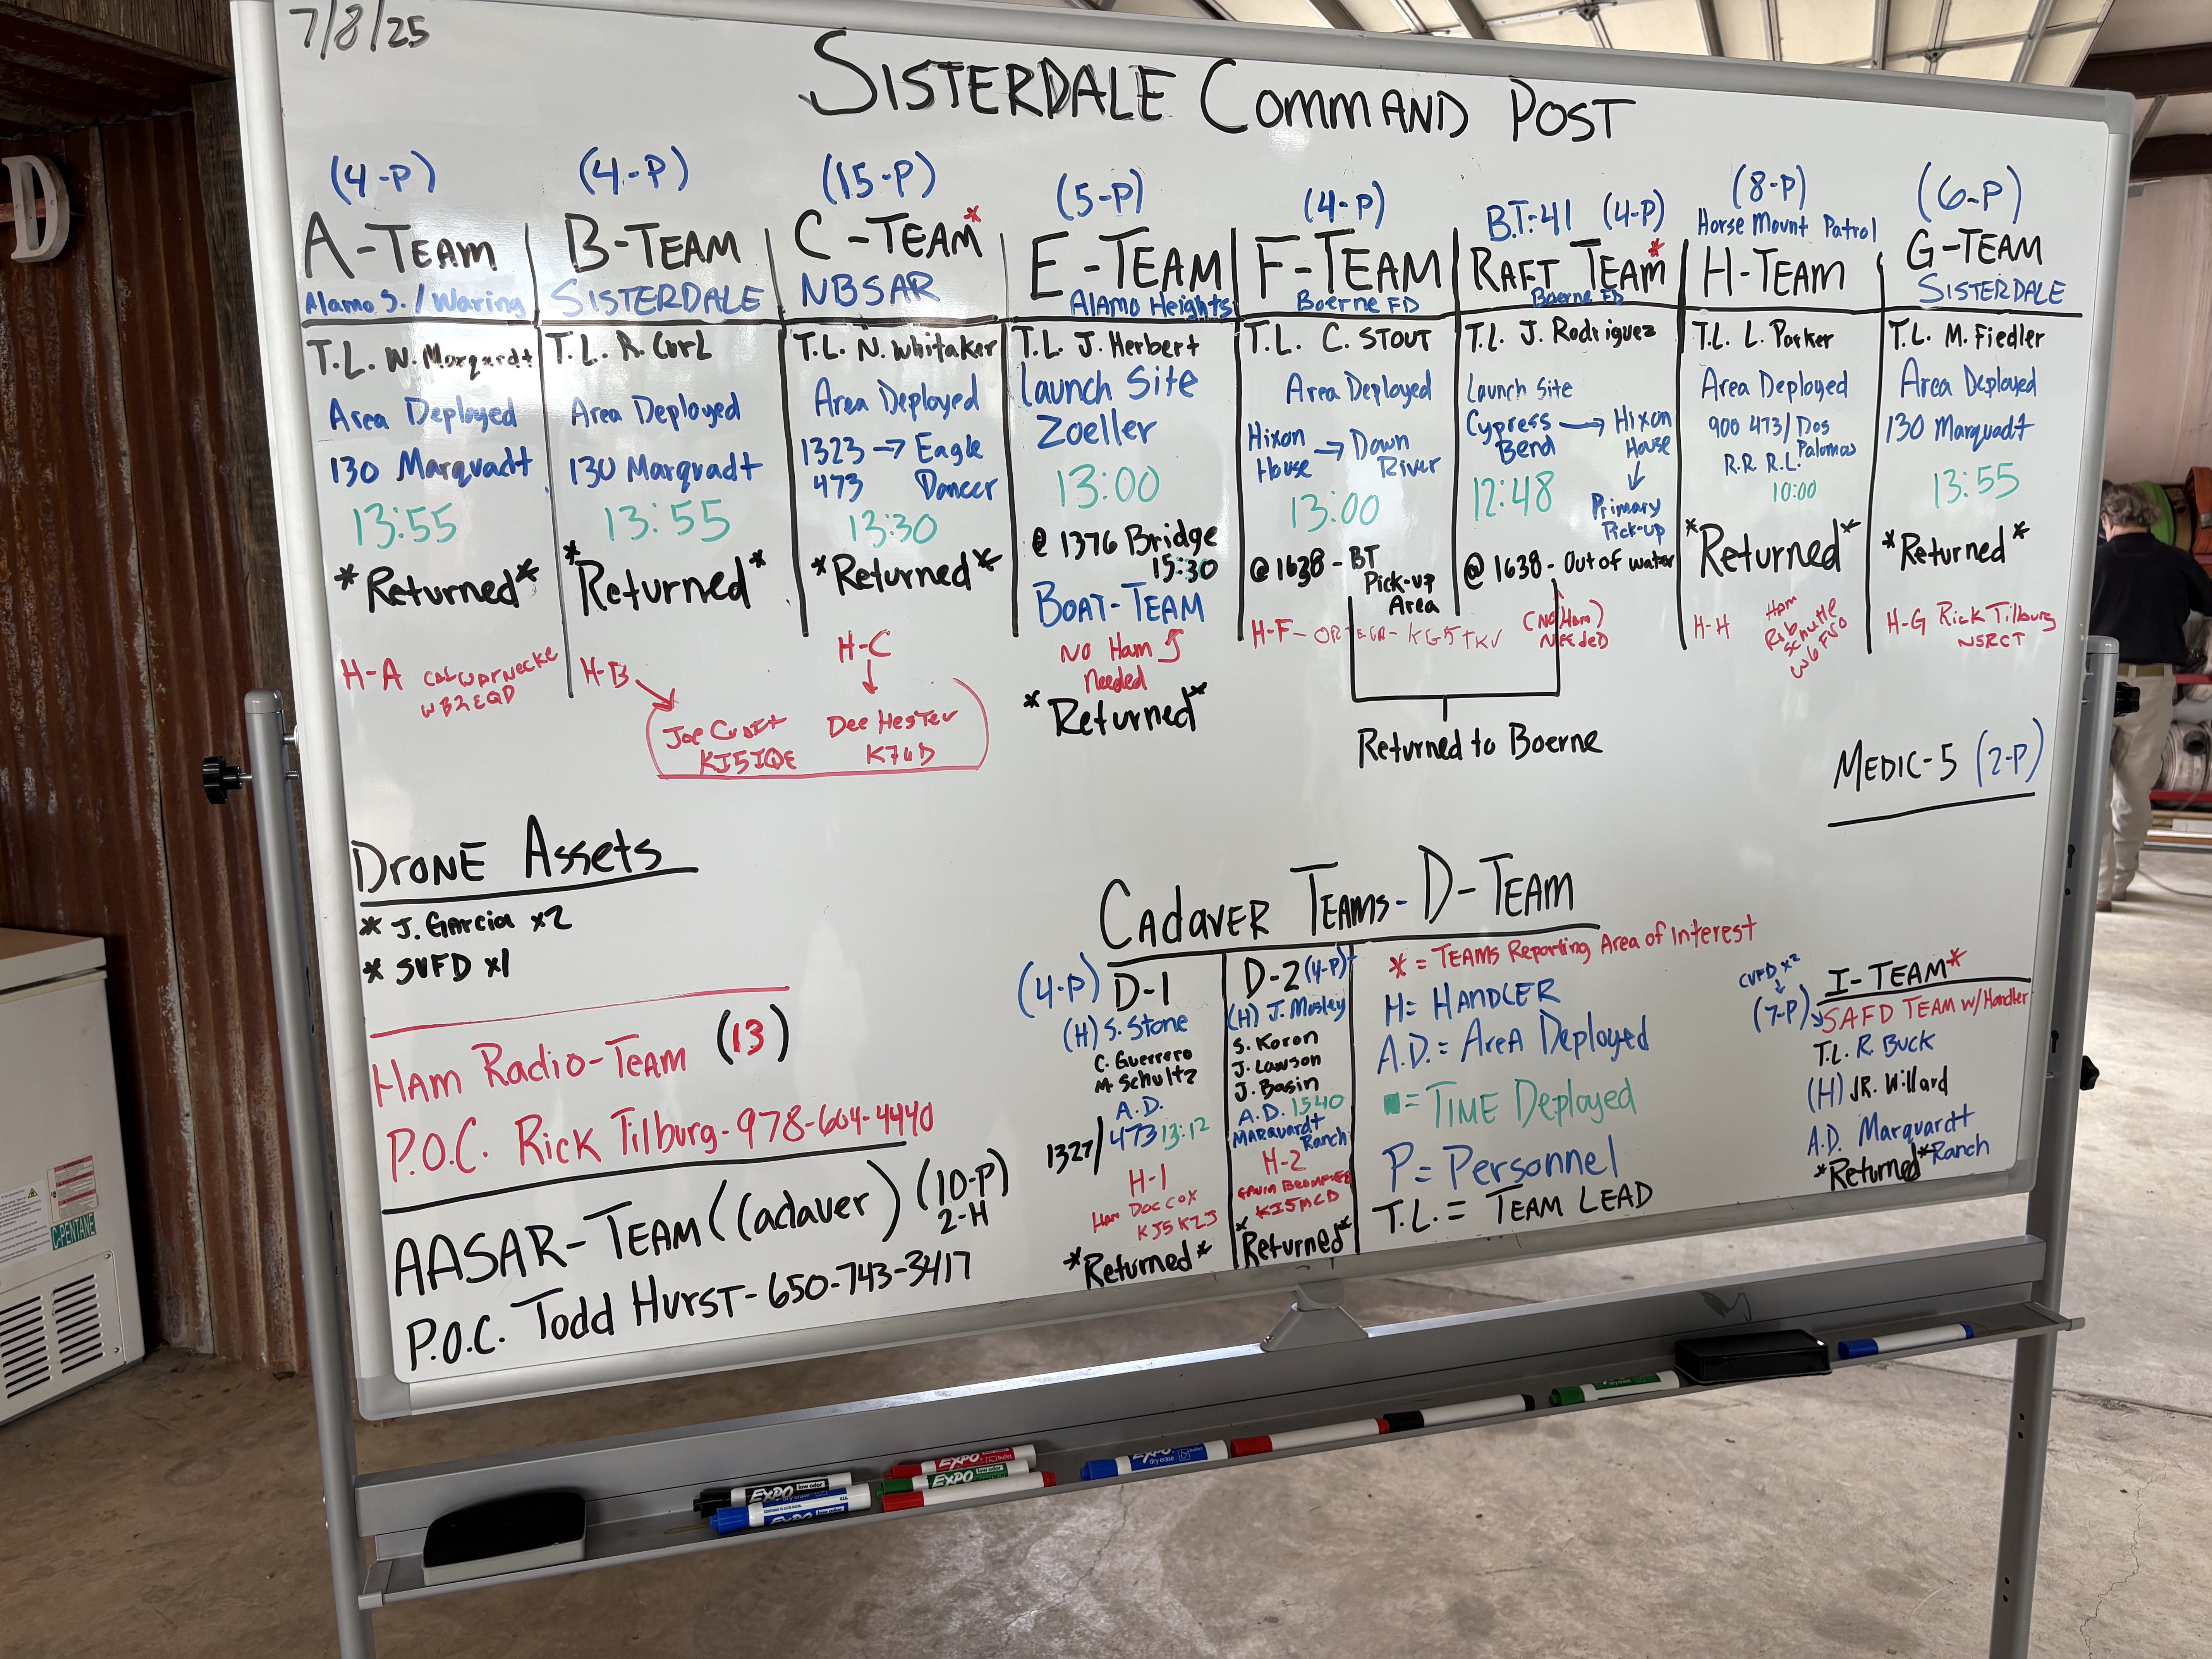 7/8/25
SISTERDALE COMMAND POST
(4-P)
A-TEAM
Alamo S. / Waring
T.L. W. Marquardt
Area Deployed
130 Marquadt
13:55
*Returned*
H-A
WB2EQD
(4-P)
B-TEAM
SISTERDALE
T.L. R. Curl
Area Deployed
130 Marquadt
13:55
*Returned*
H-B
Joe Croft
KJ5IQE
(15-P)
C-TEAM*
NBSAR
T.L. N. Whitaker
Area Deployed
1323 → Eagle
473 Dancer
13:30
*Returned*
H-C
Dee Hester
(5-P)
E-TEAM
Alamo Heights
T.L. J. Herbert
Launch Site
Zoeller
13:00
@ 1376 Bridge
15:30
BOAT-TEAM
No Ham
Needed
*Returned*
(4-P)
F-TEAM
Boerne FD
T.L. C. STOUT
Area Deployed
Hixon → Down
House River
13:00
@1638 - BT
Pick-up
Area
H-F - ORTEGA - KG5TKV
B.T.:41 (4-P)
RAFT TEAM*
Boerne FD
T.L. J. Rodriguez
Launch Site
Cypress → Hixon
Bend House
↓
12:48 Primary
Pick-up
@ 1638 - Out of water
(No Ham)
Needed
Returned to Boerne
(8-P)
Horse Mount Patrol
H-TEAM
T.L. L. Parker
Area Deployed
900 473/ Dos
Palomas
R.R. R.L.
10:00
*Returned*
H-H
Ham
Rob
Schuttle
W6FVO
(6-P)
G-TEAM
SISTERDALE
T.L. M. Fiedler
Area Deployed
130 Marquadt
13:55
*Returned*
H-G Rick Tilburg
MEDIC-5 (2-P)
DRONE Assets
* J. Garcia x2
* SVFD x1
HAM Radio-TEAM (13)
P.O.C. Rick Tilburg - 978-604-4440
AASAR-TEAM (Cadaver) (10-P)
2-H
P.O.C. Todd Hurst - 650-743-3417
CADAVER TEAMS - D-TEAM
(4-P) D-1
(H) S. Stone
C. Guerrero
M. Schultz
A.D.
1327/ 473 13:12
H-1
Ham Doc Cox
KJ5KZJ
*Returned*
D-2 (4-P)
(H) J. Mosley
S. Koron
J. Lawson
J. Basin
A.D. 1540
MARQUARDT
Ranch
H-2
KI5MCD
*Returned*
* = TEAMS Reporting Area of Interest
H= HANDLER
A.D.= AREA Deployed
= TIME Deployed
P= Personnel
T.L. = TEAM LEAD
CVFD x2
(7-P)
I-TEAM*
SAFD TEAM w/Handler
T.L. R. BUCK
(H) JR. Willard
A.D. Marquardt
Ranch
*Returned*
D
C-PENTANE
EXPO
low odor
EXPO
low odor
EXPO
low odor
EXPO
EXPO
dry erase